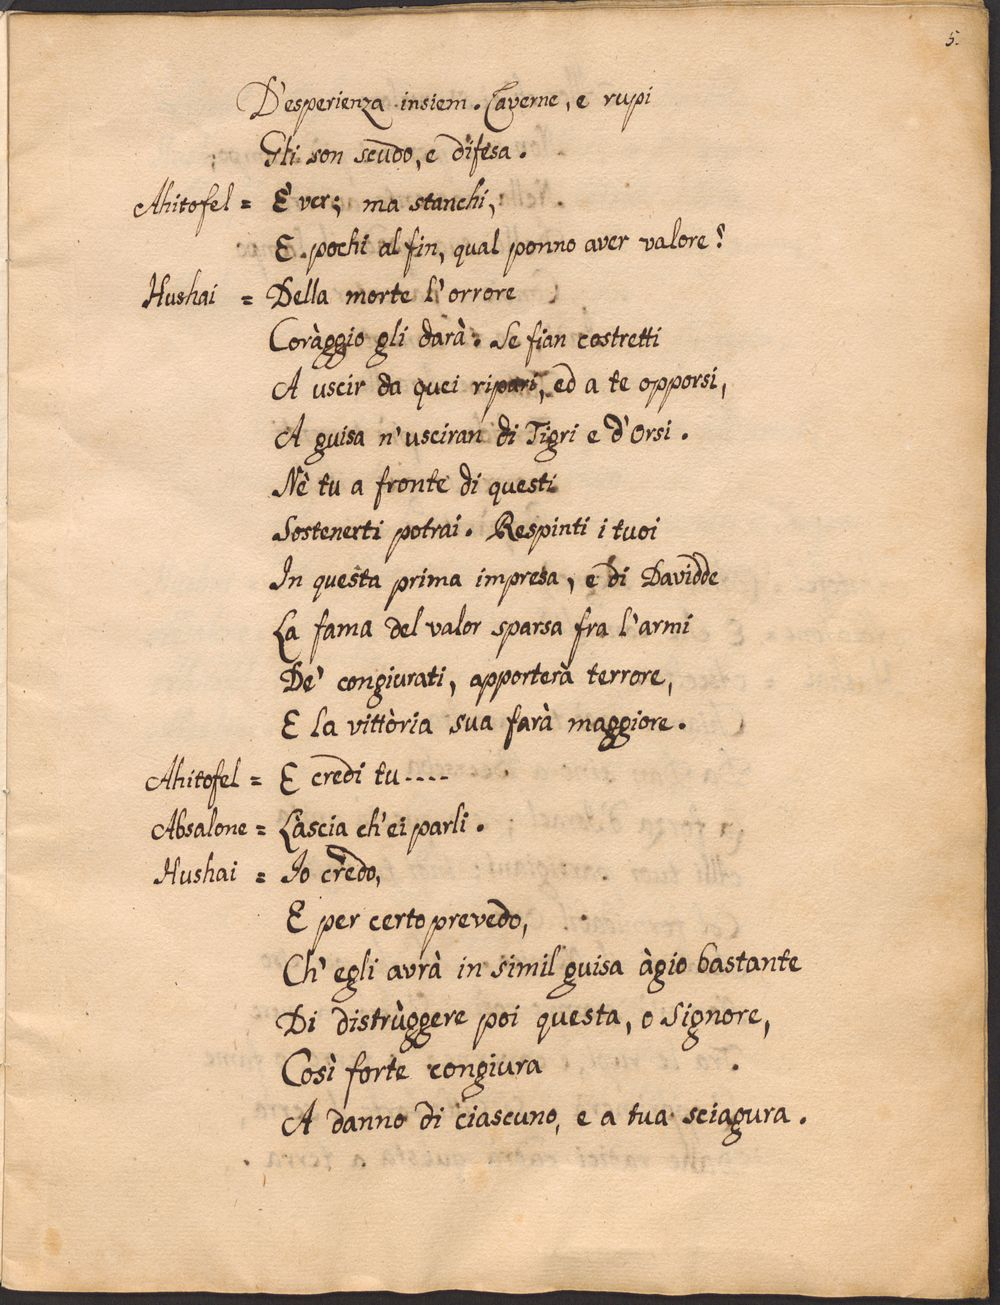 5.
D'esperienza insiem. Caverne, e rupi
Gli son scudo, e difesa.
Ahitofel = È ver; ma stanchi,
E pochi al fin, qual ponno aver valore?
Hushai = Della morte l'orrore
Coràggio gli darà. Se fian costretti
A uscir da quei ripari, ed a te opporsi,
A guisa n'usciran di Tigri e d'Orsi.
Nè tu a fronte di questi
Sostenerti potrai. Respinti i tuoi
In questa prima impresa, e di Davidde
La fama del valor sparsa fra l'armi
De' congiurati, apporterà terrore,
E la vittòria sua farà maggiore.
Ahitofel = E credi tu----
Absalone = Làscia ch'ei parli.
Hushai = Io credo,
E per certo prevedo,
Ch' egli avrà in simil guisa àgio bastante
Di distrùggere poi questa, o Signore,
Così forte congiura
A danno di ciascuno, e a tua sciagura.